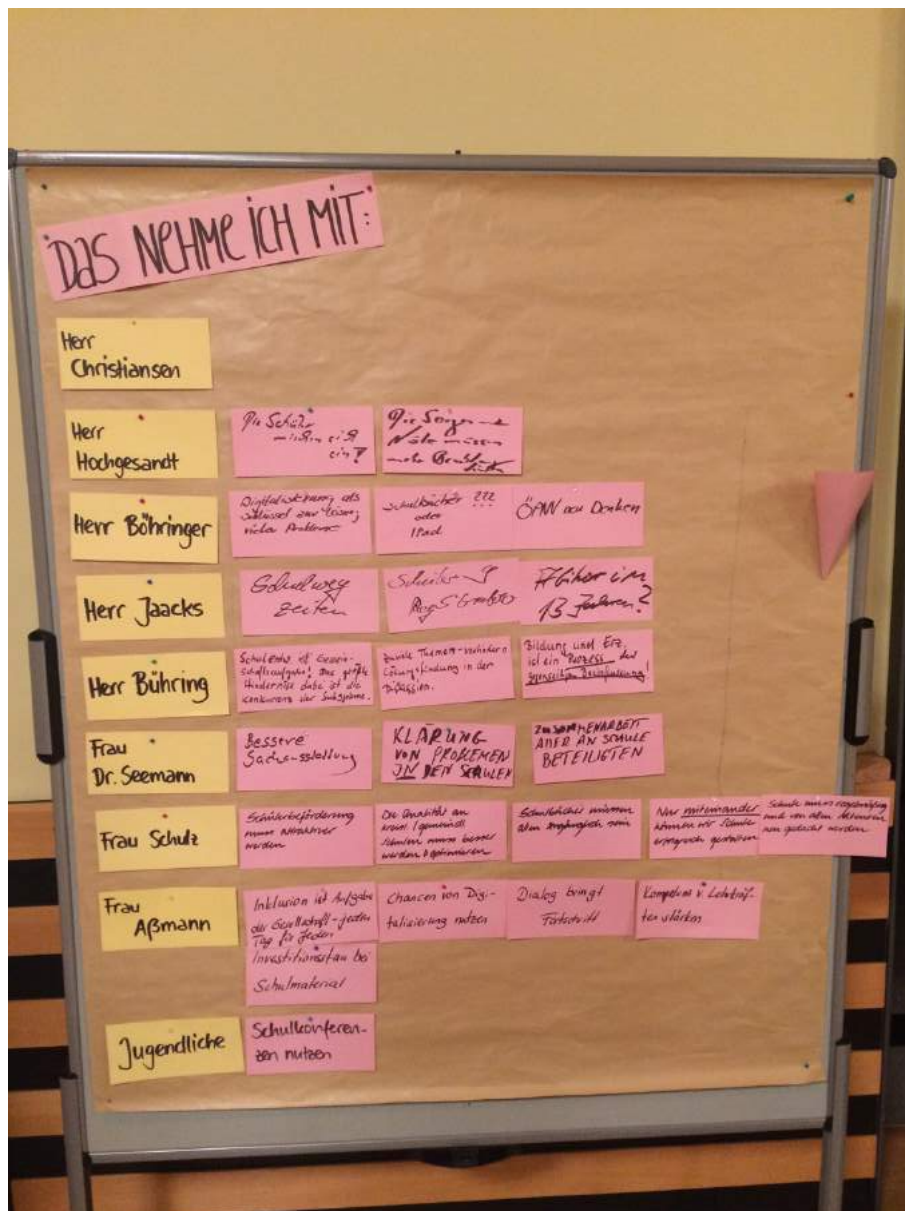 DAS NEHME ICH MIT:
Herr
Christiansen
Herr
Hochgesandt
Die Schüler
mischen sich
ein!
Die
müssen
mehr
Herr Böhringer
Digitalisierung als
Schlüssel zur Lösung
vieler Probleme
Schulbücher ???
oder
IPad
ÖPNV neu Denken
Herr Jaacks
Schulweg
zeiten
Schüler
Abitur in
13 Jahren?
Herr Bühring
ist Gemein-
schaftsaufgabe! Das größte
Hindernis dabei ist die
Konkurrenz der
Zuviele Themen verhindern
Lösungsfindung in der
Diskussion.
Bildung und Erz.
ist ein Prozess der
gegenseitigen
Frau
Dr. Seemann
Bessere
Sachausstattung
KLÄRUNG
VON PROBLEMEN
IN DEN SCHULEN
ZUSAMMENARBEIT
ALLER AN SCHULE
BETEILIGTEN
Frau Schulz
Schülerbeförderung
muss attraktiver
werden
Die Qualität an
Schulen muss besser
werden
Schulbücher müssen
allen zugänglich sein
Nur miteinander
können wir Schule
erfolgreich gestalten
Schule muss regelmäßig
und von allen Akteuren
neu gedacht werden
Frau
Aßmann
Inklusion ist Aufgabe
der Gesellschaft - jeden
Tag für Jeden
Chancen von Digi-
talisierung nutzen
Dialog bringt
Fortschritt
Kompetenz v. Lehrkräf-
ten stärken
Investitionsstau bei
Schulmaterial
Jugendliche
Schulkonferen-
zen nutzen